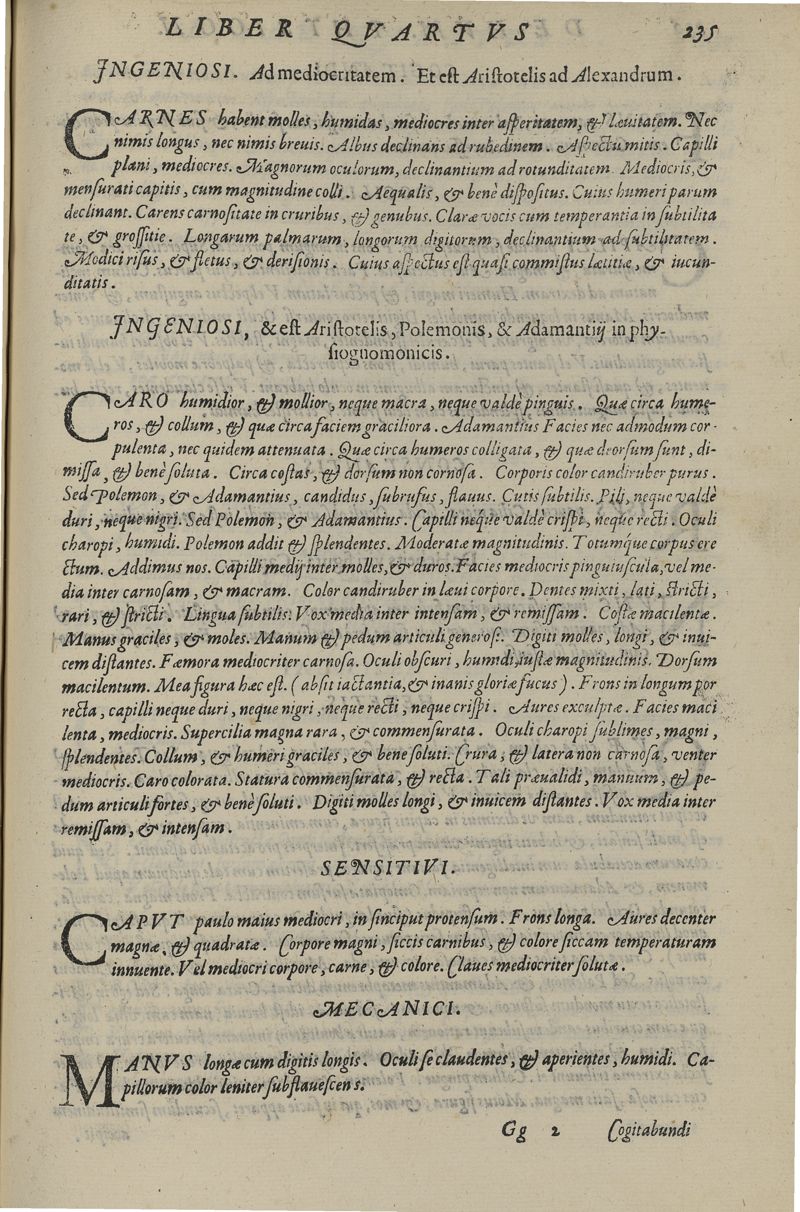 LIBER QVARTVS 235
INGENIOSI. Ad mediocritatem. Et est Aristotelis ad Alexandrum.
CARNES habent molles, humidas, mediocres inter asperitatem, & læuitatem. Nec
nimis longus, nec nimis breuis. Albus declinans ad rubedinem. Aspectu mitis. Capilli
plani, mediocres. Magnorum oculorum, declinantium ad rotunditatem. Mediocris, &
mensurati capitis, cum magnitudine colli. Aequalis, & benè dispositus. Cuius humeri parum
declinant. Carens carnositate in cruribus, & genubus. Claræ vocis cum temperantia in subtilita
te, & grossitie. Longarum palmarum, longorum digitorum, declinantium ad subtilitatem.
Modici risus, & fletus, & derisionis. Cuius aspectus est quasi commistus lætitiæ, & iucun-
ditatis.
INGENIOSI, & est Aristotelis, Polemonis, & Adamantij in phy-
siognomonicis.
CARO humidior, & mollior, neque macra, neque valdè pinguis. Quæ circa hume-
ros, & collum, & quæ circa faciem graciliora. Adamantius Facies nec admodum cor-
pulenta, nec quidem attenuata. Quæ circa humeros colligata, & quæ deorsum sunt, di-
missa, & benè soluta. Circa costas, & dorsum non cornosa. Corporis color candiruber purus.
Sed Polemon, & Adamantius, candidus, subrufus, flauus. Cutis subtilis. Pili, neque valdè
duri, neque nigri. Sed Polemon, & Adamantius. Capilli neque valdè crispi, neque recti. Oculi
charopi, humidi. Polemon addit & splendentes. Moderatæ magnitudinis. Totumque corpus ere
ctum. Addimus nos. Capilli medij inter molles, & duros. Facies mediocris pinguiuscula, vel me-
dia inter carnosam, & macram. Color candiruber in læui corpore. Dentes mixti, lati, stricti,
rari, & stricti. Lingua subtilis. Vox media inter intensam, & remissam. Costæ macilentæ.
Manus graciles, & moles. Manum & pedum articuli generosi. Digiti molles, longi, & inui-
cem distantes. Fæmora mediocriter carnosa. Oculi obscuri, humidi, iustæ magnitudinis. Dorsum
macilentum. Mea figura hæc est. (absit iactantia, & inanis gloriæ fucus). Frons in longum por
recta, capilli neque duri, neque nigri, neque recti, neque crispi. Aures exculptæ. Facies maci
lenta, mediocris. Supercilia magna rara, & commensurata. Oculi charopi sublimes, magni,
splendentes. Collum, & humeri graciles, & bene soluti. Crura, & latera non carnosa, venter
mediocris. Caro colorata. Statura commensurata, & recta. Tali præualidi, manuum, & pe-
dum articuli fortes, & benè soluti. Digiti molles longi, & inuicem distantes. Vox media inter
remissam, & intensam.
SENSITIVI.
CAPVT paulo maius mediocri, in sinciput protensum. Frons longa. Aures decenter
magnæ, & quadratæ. Corpore magni, siccis carnibus, & colore siccam temperaturam
innuente. Vel mediocri corpore, carne, & colore. Claues mediocriter solutæ.
MECANICI.
MANVS longæ cum digitis longis. Oculi se claudentes, & aperientes, humidi. Ca-
pillorum color leniter subflauescens.
Gg 2 Cogitabundi